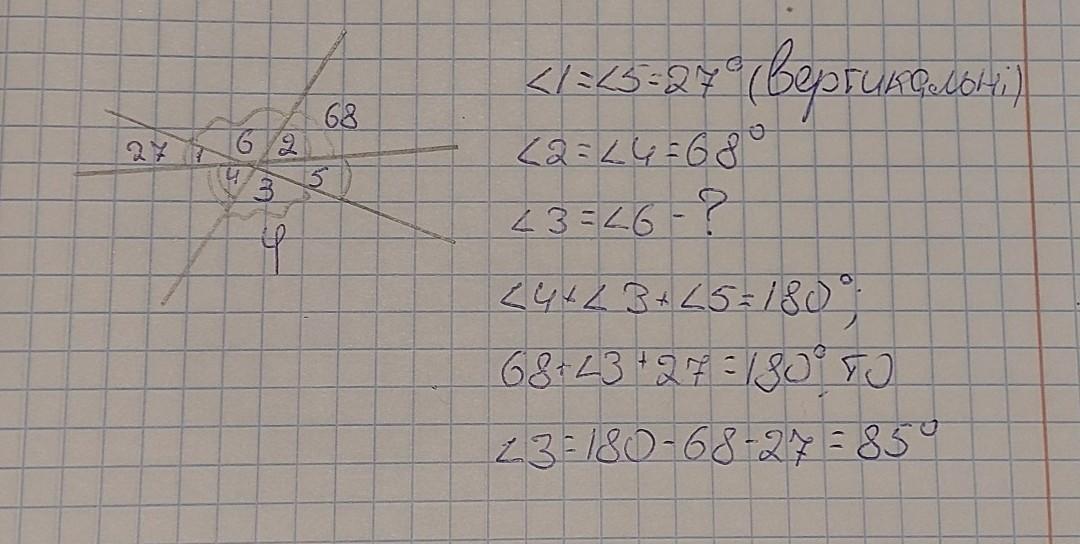 68
27 1 6 2
4 3 5
φ
∠1=∠5=27° (вертикальні)
∠2=∠4=68°
∠3=∠6-?
∠4+∠3+∠5=180°;
68+∠3+27=180°, то
∠3=180-68-27=85°